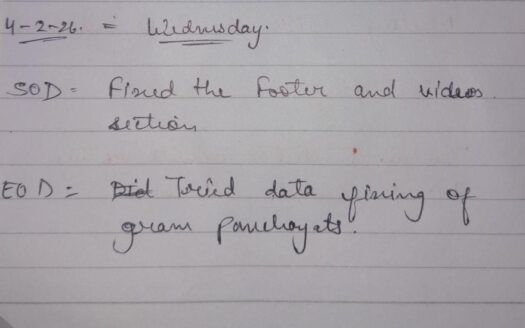 4-2-26. = Wednesday.
SOD = Fixed the footer and videos
section
EOD = Did Tried data fixing of
gram panchayats.